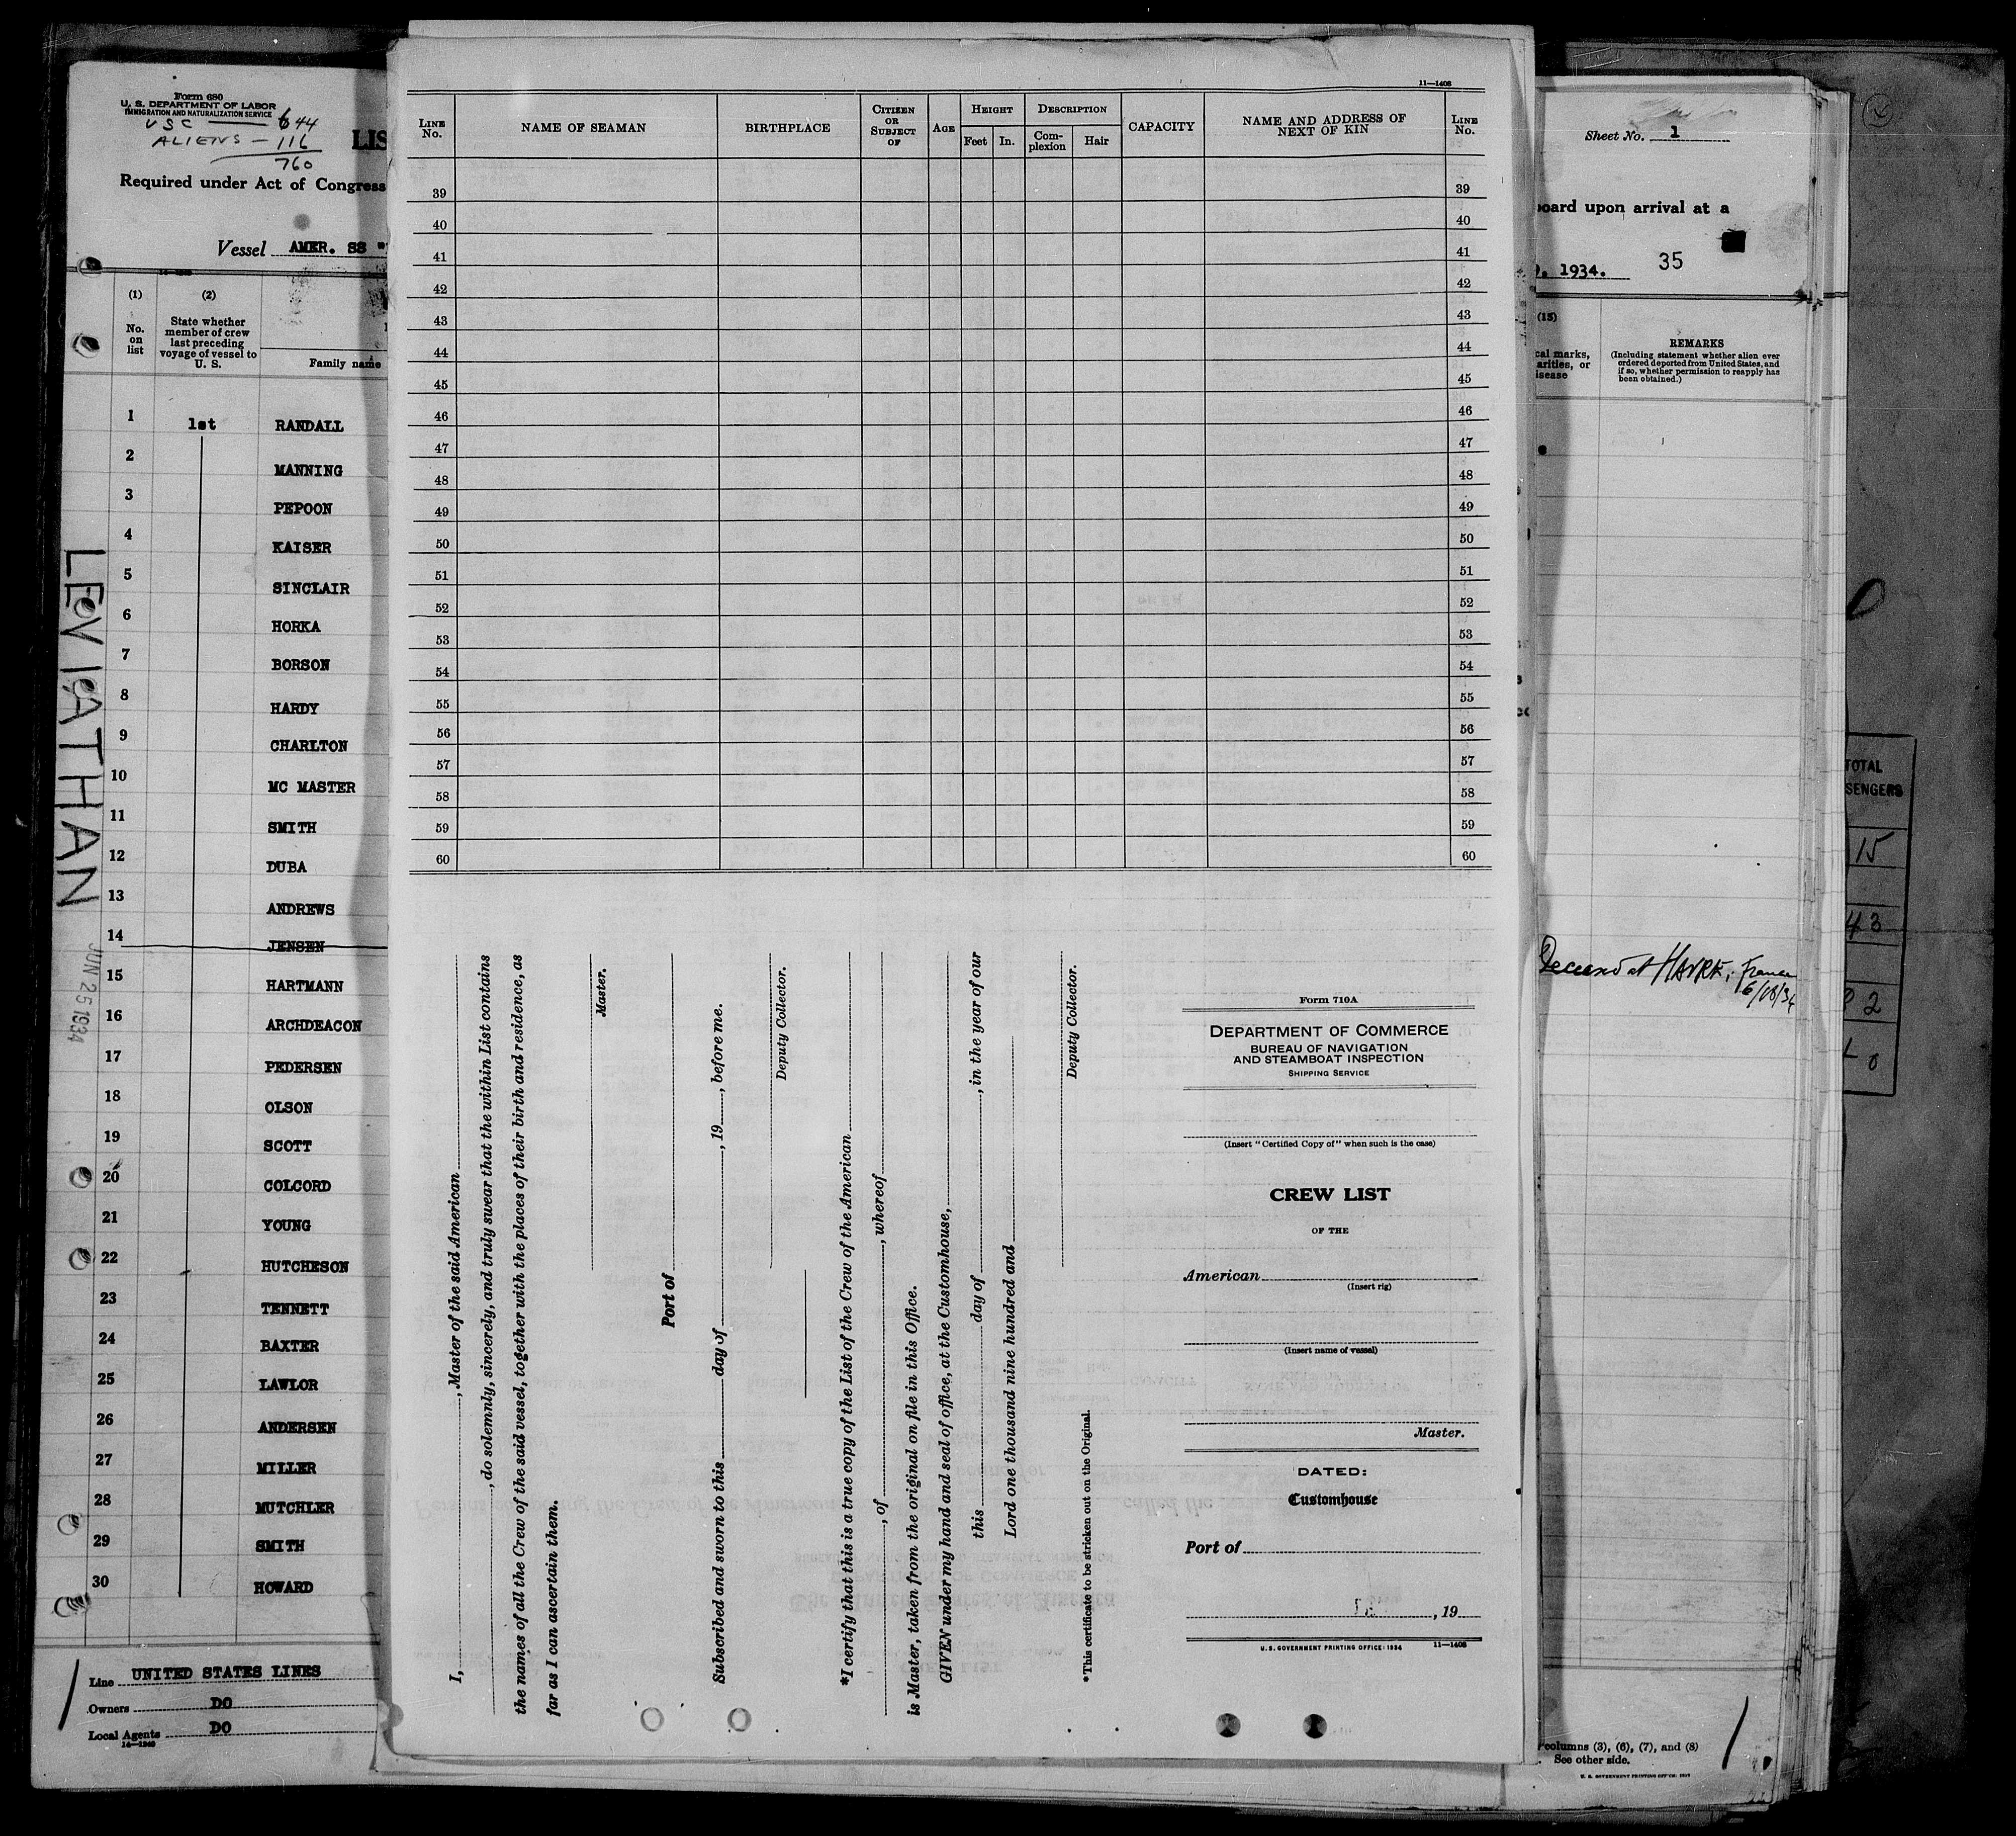 Form 680
U. S. DEPARTMENT OF LABOR
IMMIGRATION AND NATURALIZATION SERVICE
USC — 644
ALIENS — 116
760
LIS
Required under Act of Congress
Vessel AMER. SS "
(1) (2)
No. on list
State whether member of crew last preceding voyage of vessel to U. S.
Family name
1 1st RANDALL
2 MANNING
3 PEPOON
4 KAISER
5 SINCLAIR
6 HORKA
7 BORSON
8 HARDY
9 CHARLTON
10 MC MASTER
11 SMITH
12 DUBA
13 ANDREWS
14 JENSEN
15 HARTMANN
16 ARCHDEACON
17 PEDERSEN
18 OLSON
19 SCOTT
20 COLCORD
21 YOUNG
22 HUTCHESON
23 TENNETT
24 BAXTER
25 LAWLOR
26 ANDERSEN
27 MILLER
28 MUTCHLER
29 SMITH
30 HOWARD
LEVIATHAN
JUN 25 1934
Line UNITED STATES LINES
Owners DO
Local Agents DO
14—1240
11—1408
LINE No.
NAME OF SEAMAN
BIRTHPLACE
CITIZEN OR SUBJECT OF
AGE
HEIGHT
Feet In.
DESCRIPTION
Complexion Hair
CAPACITY
NAME AND ADDRESS OF NEXT OF KIN
LINE No.
39 39
40 40
41 41
42 42
43 43
44 44
45 45
46 46
47 47
48 48
49 49
50 50
51 51
52 52
53 53
54 54
55 55
56 56
57 57
58 58
59 59
60 60
I, , Master of the said American
, do solemnly, sincerely, and truly swear that the within List contains
the names of all the Crew of the said vessel, together with the places of their birth and residence, as
far as I can ascertain them.
Master.
Port of
Subscribed and sworn to this day of , 19 , before me.
Deputy Collector.
*I certify that this is a true copy of the List of the Crew of the American
, of , whereof
is Master, taken from the original on file in this Office.
GIVEN under my hand and seal of office, at the Customhouse,
this day of , in the year of our
Lord one thousand nine hundred and
Deputy Collector.
*This certificate to be stricken out on the Original.
Form 710A
DEPARTMENT OF COMMERCE
BUREAU OF NAVIGATION
AND STEAMBOAT INSPECTION
SHIPPING SERVICE
(Insert "Certified Copy of" when such is the case)
CREW LIST
OF THE
American
(Insert rig)
(Insert name of vessel)
Master.
DATED:
Customhouse
Port of
, 19
U. S. GOVERNMENT PRINTING OFFICE: 1934 11—1408
Sheet No. 1
board upon arrival at a
9, 1934. 35
(15)
cal marks,
arities, or
isease
REMARKS
(Including statement whether alien ever
ordered deported from United States, and
if so, whether permission to reapply has
been obtained.)
Deceased at HAVRE, France
6/18/34
columns (3), (6), (7), and (8)
See other side.
U. S. GOVERNMENT PRINTING OFFICE
TOTAL
SENGERS
15
43
2
0